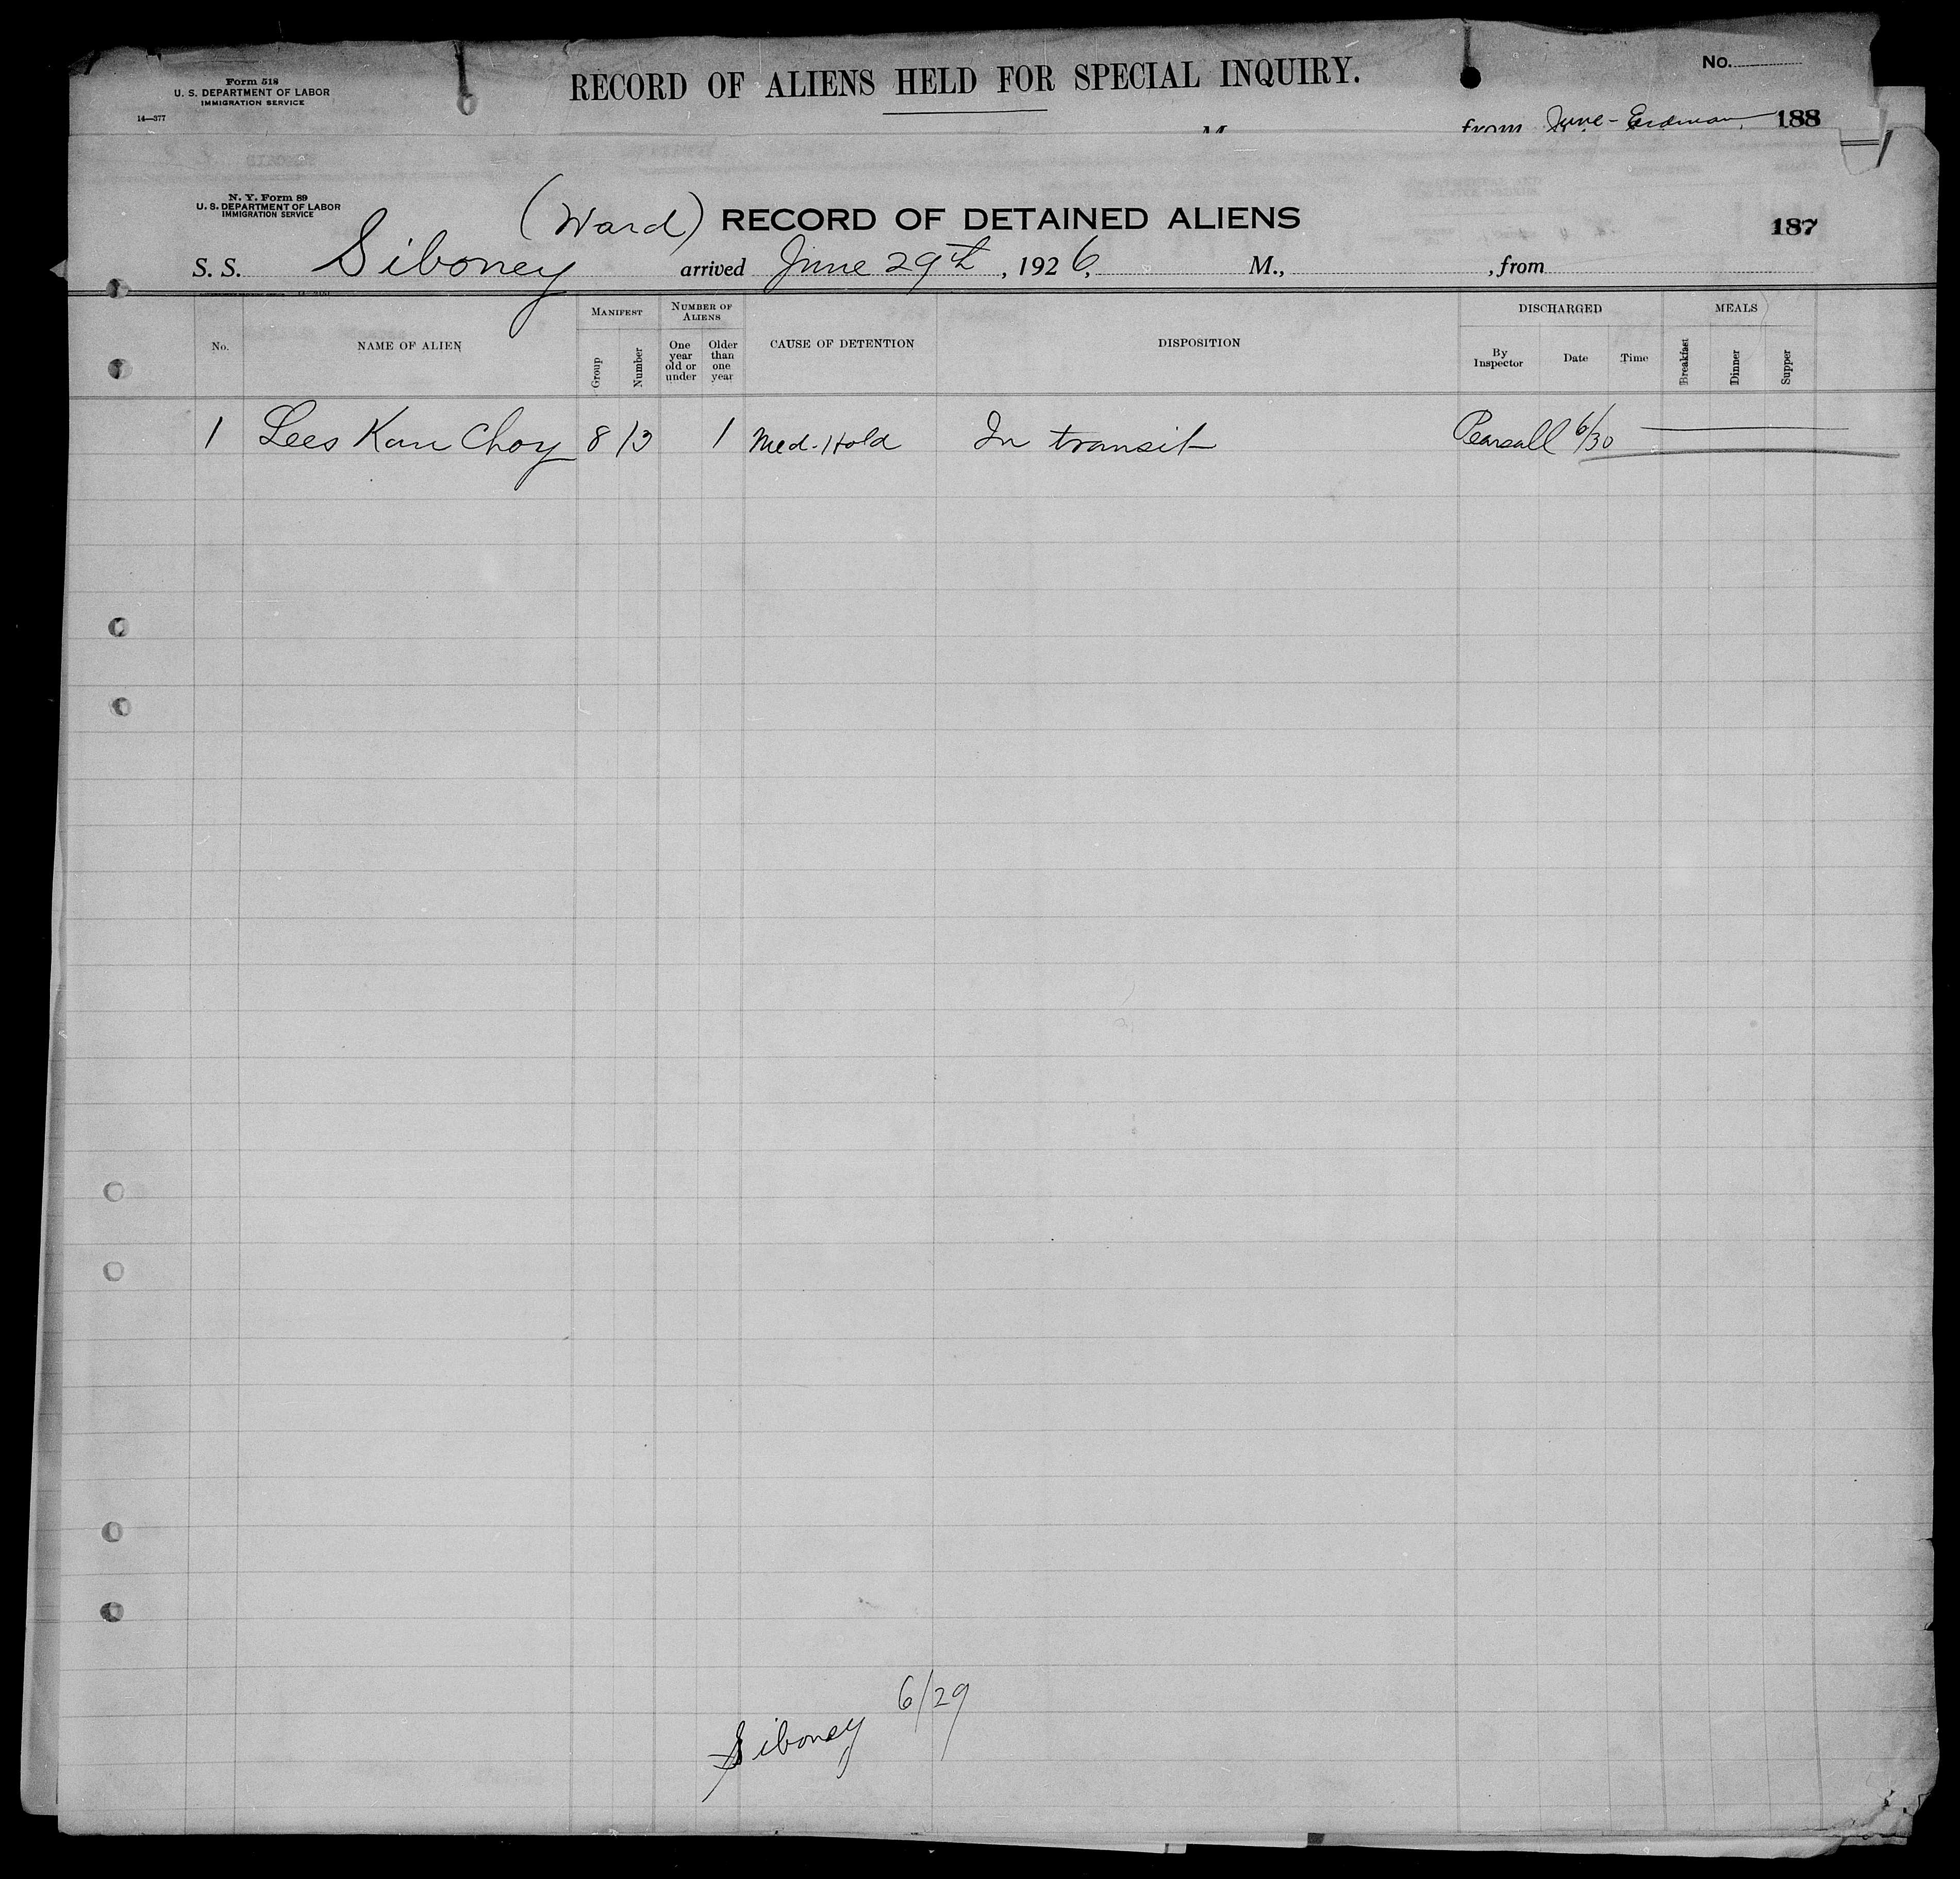 Form 518
U. S. DEPARTMENT OF LABOR
IMMIGRATION SERVICE
14—377
RECORD OF ALIENS HELD FOR SPECIAL INQUIRY.
No.
from June - Erdman 188
N. Y. Form 89
U. S. DEPARTMENT OF LABOR
IMMIGRATION SERVICE
(Ward) RECORD OF DETAINED ALIENS 187
S. S. Siboney arrived June 29th, 1926, M., , from
No. NAME OF ALIEN MANIFEST Group Number NUMBER OF ALIENS One year old or under Older than one year CAUSE OF DETENTION DISPOSITION DISCHARGED By Inspector Date Time MEALS Breakfast Dinner Supper
1 Lees Kan Choy 8 13 1 Med. Hold In transit Pearsall 6/30
6/29
Siboney